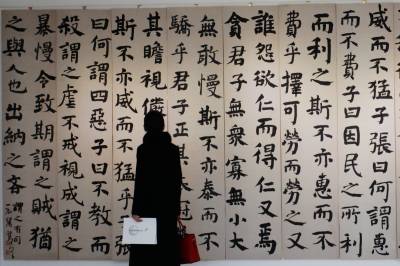 威而不猛子張曰何謂惠
而不費子曰因民之所利
而利之斯不亦惠而不
費乎擇可勞而勞之又
誰怨欲仁而得仁又焉
貪君子無衆寡無小大
無敢慢斯不亦泰而不
驕乎君子正
其瞻視儼
斯不亦威而不猛乎子
曰何謂四惡子曰不教而
殺謂之虐不戒視成謂之
暴慢令致期謂之賊猶
之與人也出納之吝
謂之有司